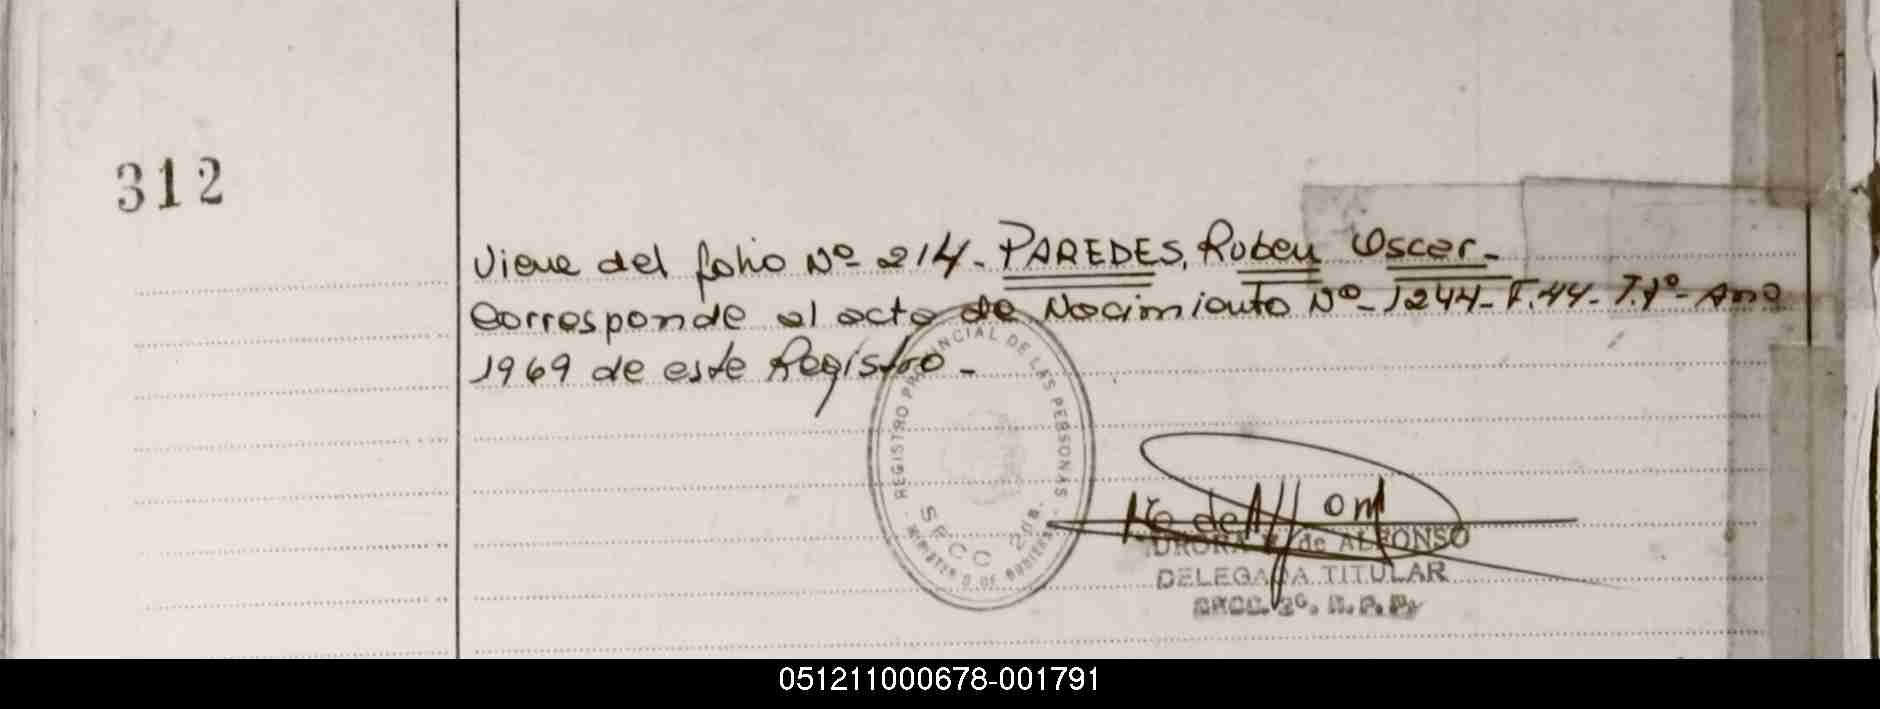 312
Viene del folio Nº- 214- PAREDES, Ruben Oscar-
Corresponde al acta de Nacimiento Nº- 1244- F.44- T.1º- Año
1969 de este Registro-
REGISTRO PROVINCIAL DE LAS PERSONAS
SECC
MINISTERIO DE GOBIERNO
de ALFONSO
DELEGADA TITULAR
SECC. 2º. R. P. P.
051211000678-001791